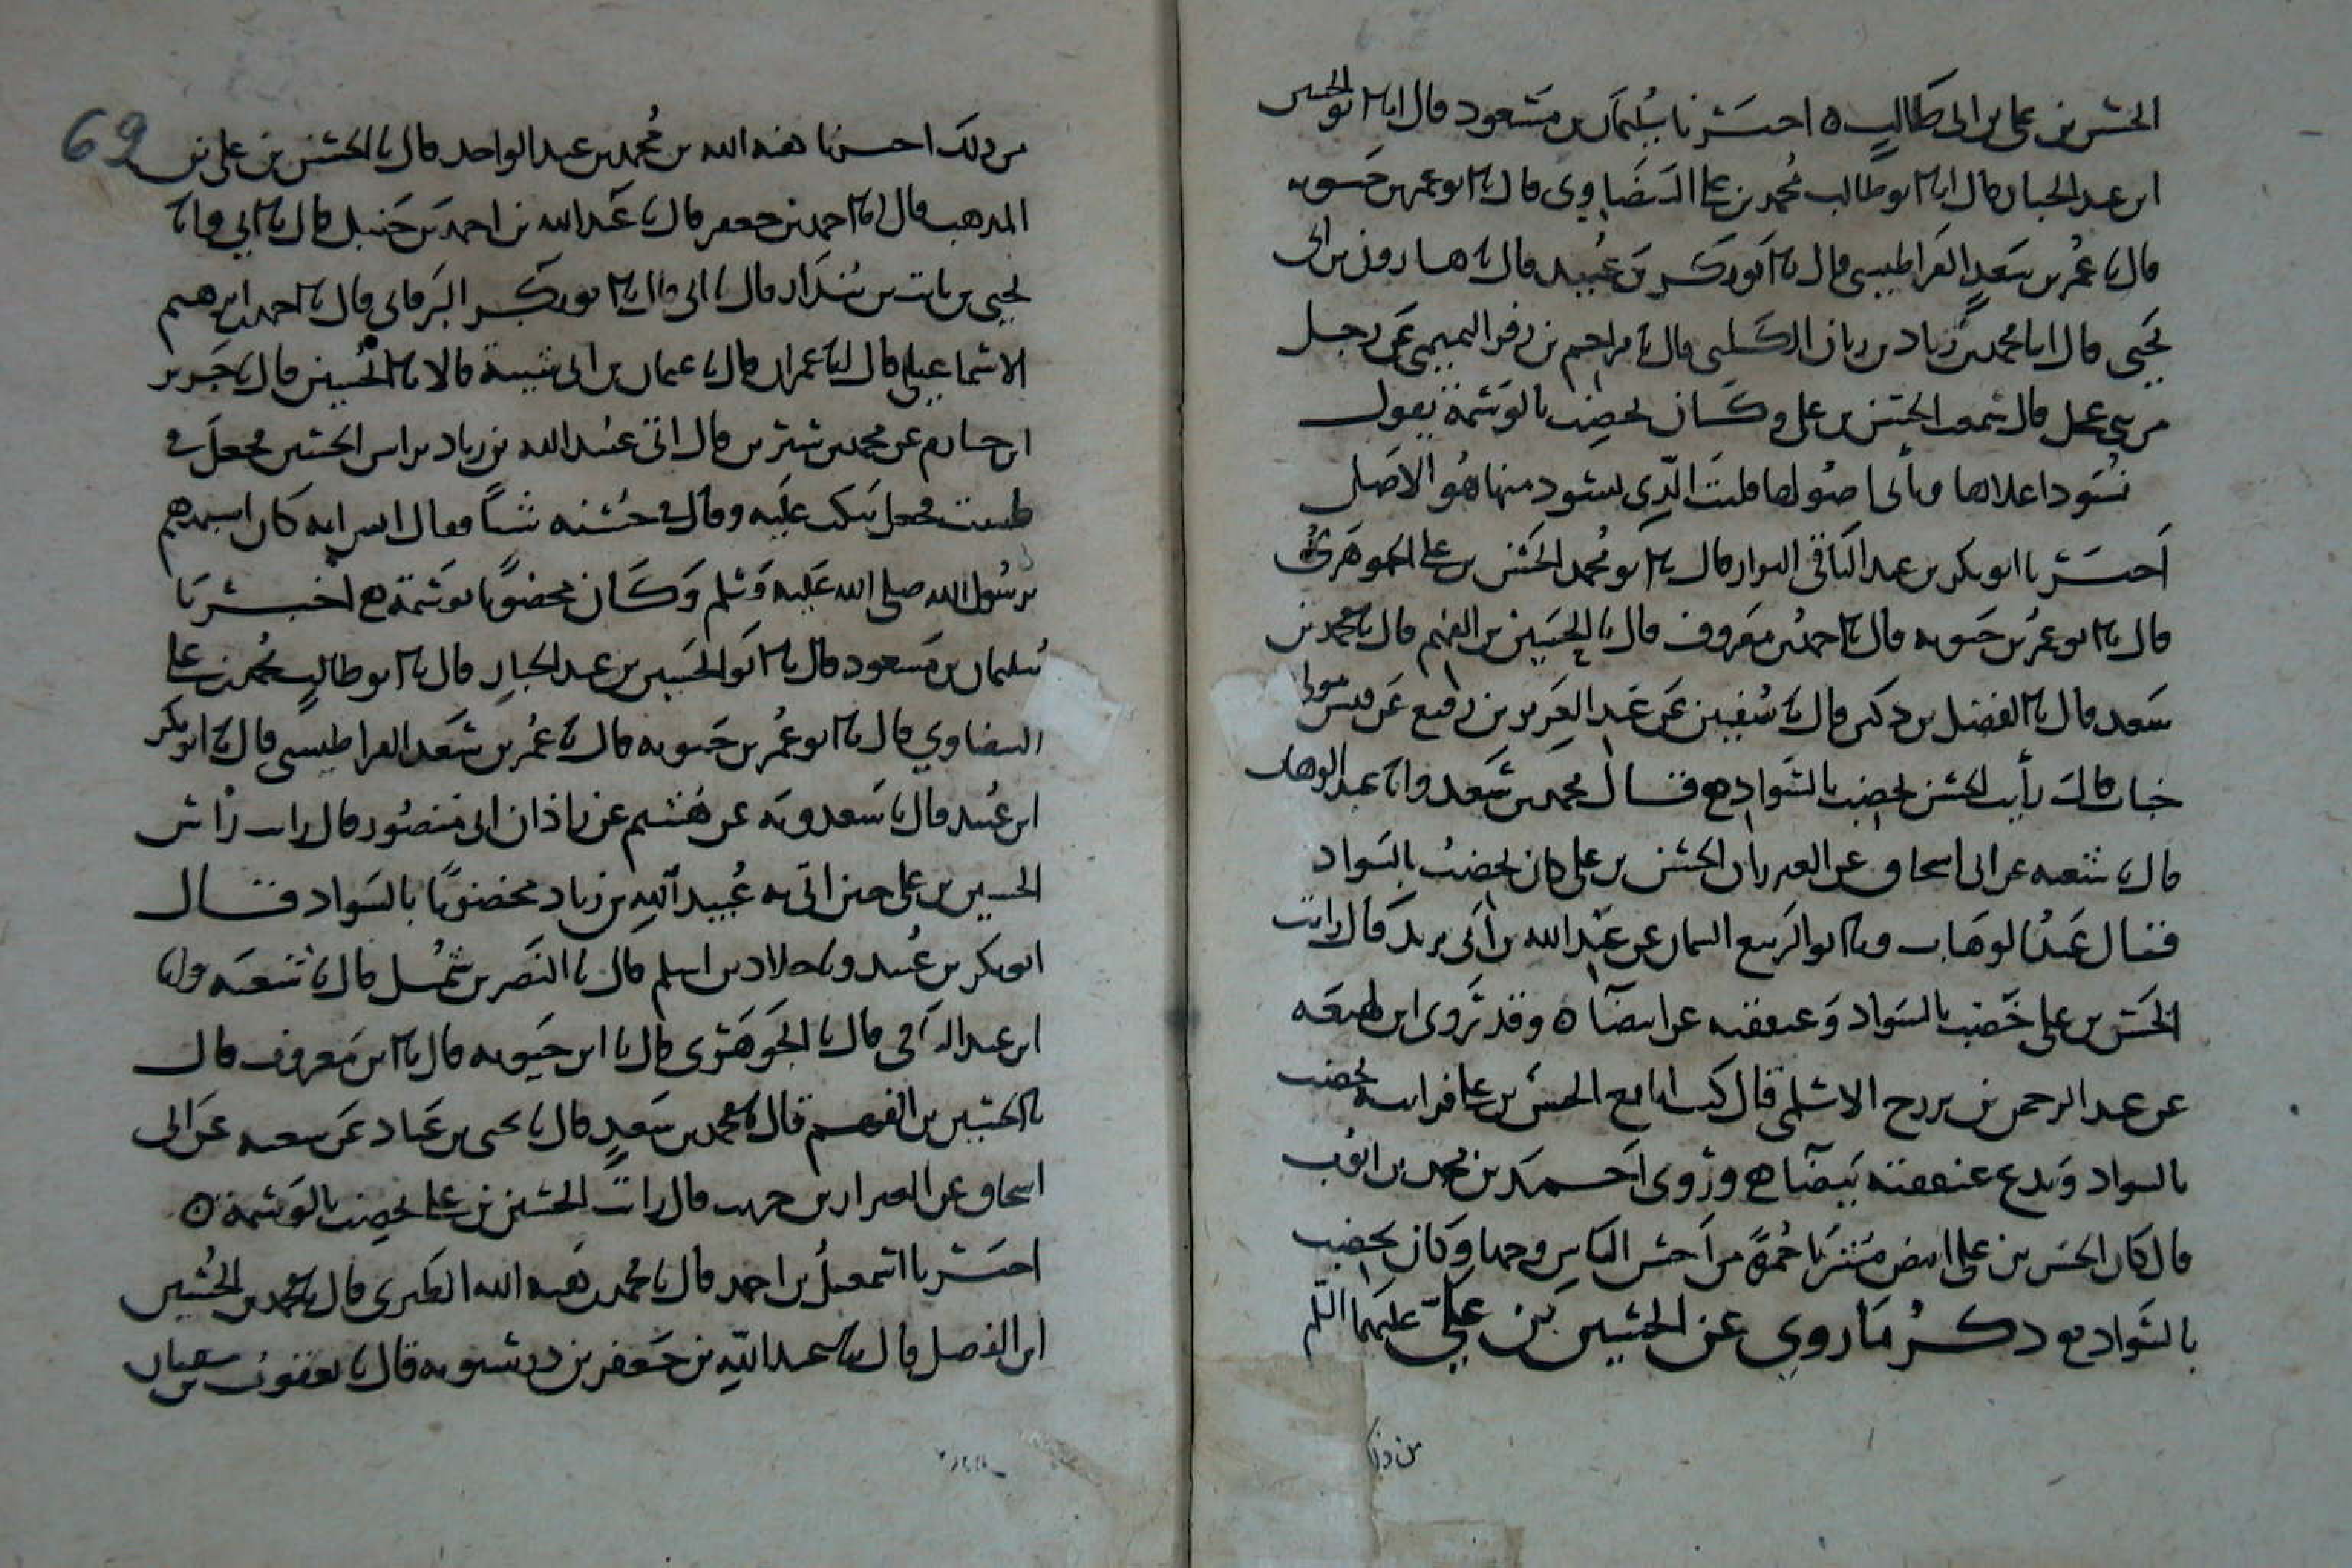 الحسن بن علي بن ابي طالب ه اخبرنا سليمان بن مسعود قال انا ابو الحسين
ابن عبد الجبار قال انا ابو طالب محمد بن علي البيضاوي قال انا ابو عمر بن حيويه
قال نا عمر بن سعد القراطيسي قال نا ابو بكر بن عبيد قال نا هارون بن ابي
يحيى قال انا محمد بن زياد بن زبان الكلبي قال نا مزاحم بن زفر التميمي عن رجل
من بني عجل قال سمعت الحسن بن علي وكان يخضب بالوسمة يقول
نسود اعلاها وتأبى اصولها فليت الذي يسود منها هو الاصل
اخبرنا ابو بكر بن عبد الباقي البزار قال انا ابو محمد الحسن بن علي الجوهري
قال انا ابو عمر بن حيويه قال انا احمد بن معروف قال نا الحسين بن الفهم قال نا محمد بن
سعد قال نا الفضل بن دكين قال نا سفين عن عبد العزيز بن رفيع عن قيس مولى
خباب قال رأيت الحسن يخضب بالسواد ه قال محمد بن سعد وانا عبد الوهاب
قال نا شعبه عن ابي اسحاق عن العيزار ان الحسن بن علي كان يخضب بالسواد
قال عبد الوهاب ونا ابو الربيع السمان عن عبد الله بن ابي يزيد قال رايت
الحسن بن علي خضب بالسواد وعنفقته غرا بيضا ه وقد روى ابن لهيعه
عن عبد الرحمن بن بزرج الاسلمي قال كنت امع الحسن بن علي فرايته يخضب
بالسواد ويدع عنفقته بيضا ه وروى احمد بن محمد بن ايوب
قال كان الحسن بن علي ابيض مشربا حمرة من احسن الناس وجها وكان يخضب
بالسواد ه ذكر ما روي عن الحسين بن علي عليهما السلم
من ذلك
69
من ذلك اخبرنا هبه الله بن محمد بن عبد الواحد قال نا الحسن بن علي بن
المذهب قال انا احمد بن جعفر قال نا عبد الله بن احمد بن حنبل قال نا ابي وانا
يحيى بن ثابت بن بندار قال نا ابي قال انا ابو بكر البرقاني قال نا احمد بن ابرهيم
الاسماعيلي قال نا عمران قال نا عثمان بن ابي شيبة قالا نا الحسين قال نا جرير
ابن حازم عن محمد بن سيرين قال اتي عبيد الله بن زياد براس الحسين فجعل في
طست فجعل ينكت عليه وقال في حسنه شيأ فقال انس انه كان اشبههم
برسول الله صلى الله عليه وسلم وكان مخضوبا بوسمة ه اخبرنا
سليمان بن مسعود قال انا ابو الحسين بن عبد الجبار قال انا ابو طالب محمد بن علي
البيضاوي قال نا ابو عمر بن حيويه قال نا عمر بن سعد القراطيسي قال نا ابو بكر
ابن عبيد قال نا سعدويه عن هشيم عن زاذان ابي منصور قال رايت راس
الحسين بن علي حين اتى به عبيد الله بن زياد مخضوبا بالسواد قال
ابو بكر بن عبيد ونا خلاد بن اسلم قال نا النضر بن شميل قال نا شعبه وانا
ابن عبد الباقي قال نا الجوهري قال نا ابن حيويه قال انا ابن معروف قال
نا الحسين بن الفهم قال نا محمد بن سعد قال نا يحيى بن عباد عن شعبه عن ابي
اسحاق عن العيزار بن حريث قال رايت الحسين بن علي يخضب بالوسمة ه
اخبرنا اسمعيل بن احمد قال نا محمد بن هبه الله الطبري قال نا محمد بن الحسين
ابن الفضل قال نا عبد الله بن جعفر بن درستويه قال نا يعقوب بن سفيان